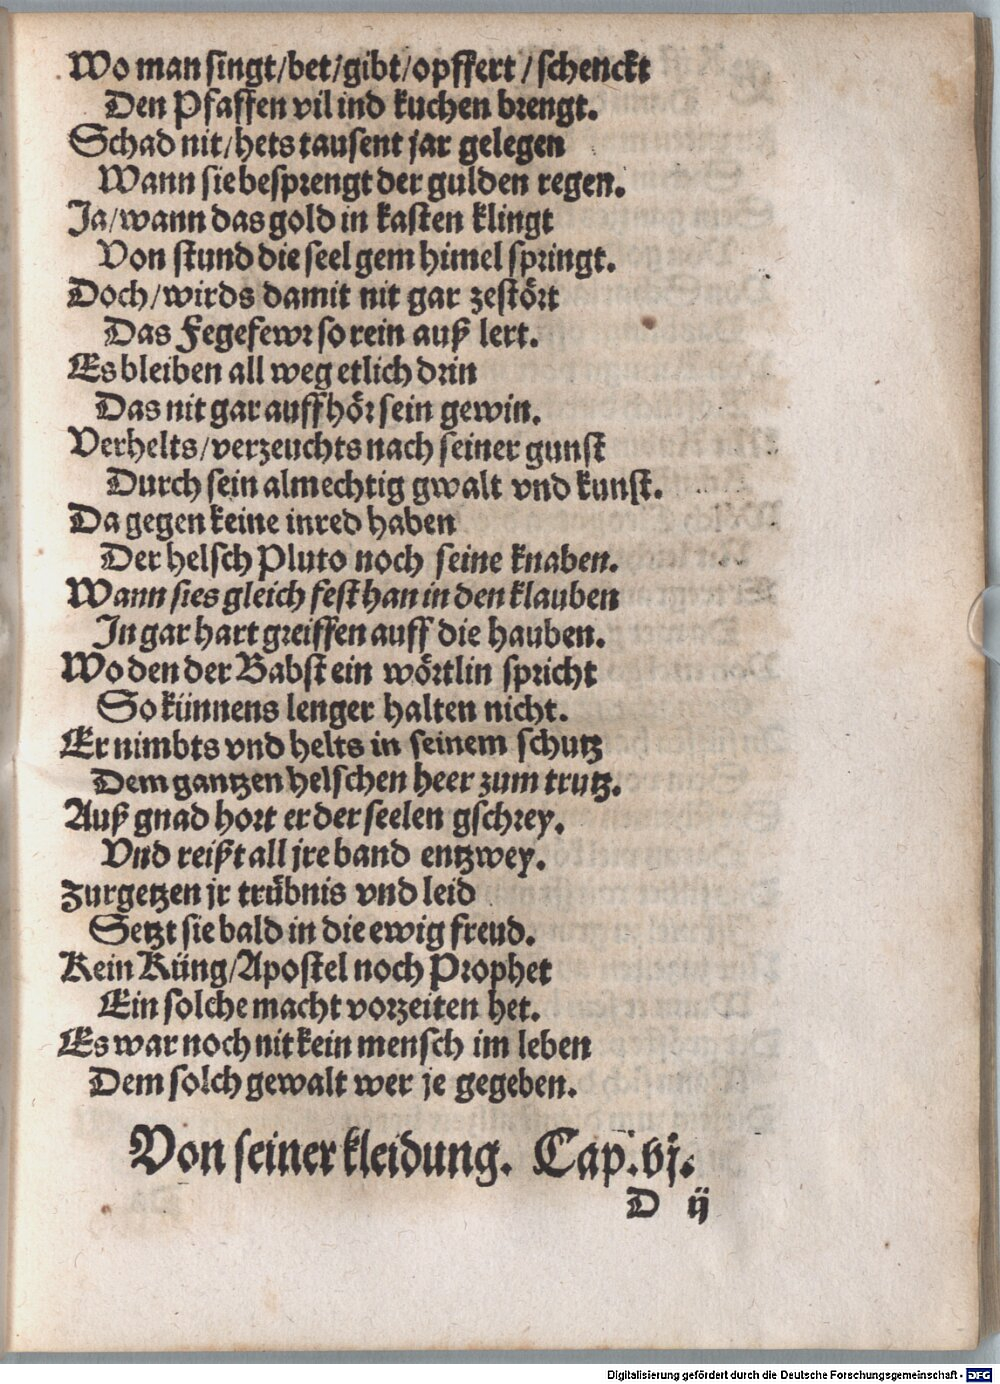 Wo man singt/bet/gibt/opffert/schenckt
Den Pfaffen vil ind kuchen brengt.
Schad nit/hets tausent jar gelegen
Wann sie besprengt der gulden regen.
Ja/wann das gold in kasten klingt
Von stund die seel gem himel springt.
Doch/wirds damit nit gar zestört
Das Fegefewr so rein auß lert.
Es bleiben all weg etlich drin
Das nit gar auffhör sein gewin.
Verhelts/verzeuchts nach seiner gunst
Durch sein almechtig gwalt vnd kunst.
Da gegen keine inred haben
Der helsch Pluto noch seine knaben.
Wann sies gleich fest han in den klauben
In gar hart greiffen auff die hauben.
Wo den der Babst ein wörtlin spricht
So künnens lenger halten nicht.
Er nimbts vnd helts in seinem schutz
Dem gantzen helschen heer zum trutz.
Auß gnad hort er der seelen gschrey.
Vnd reißt all jre band entzwey.
Zurgetzen jr trübnis vnd leid
Setzt sie bald in die ewig freud.
Kein Küng/Apostel noch Prophet
Ein solche macht vorzeiten het.
Es war noch nit kein mensch im leben
Dem solch gewalt wer je gegeben.
Von seiner kleidung. Cap.vj.
D ij
Digitalisierung gefördert durch die Deutsche Forschungsgemeinschaft - DFG